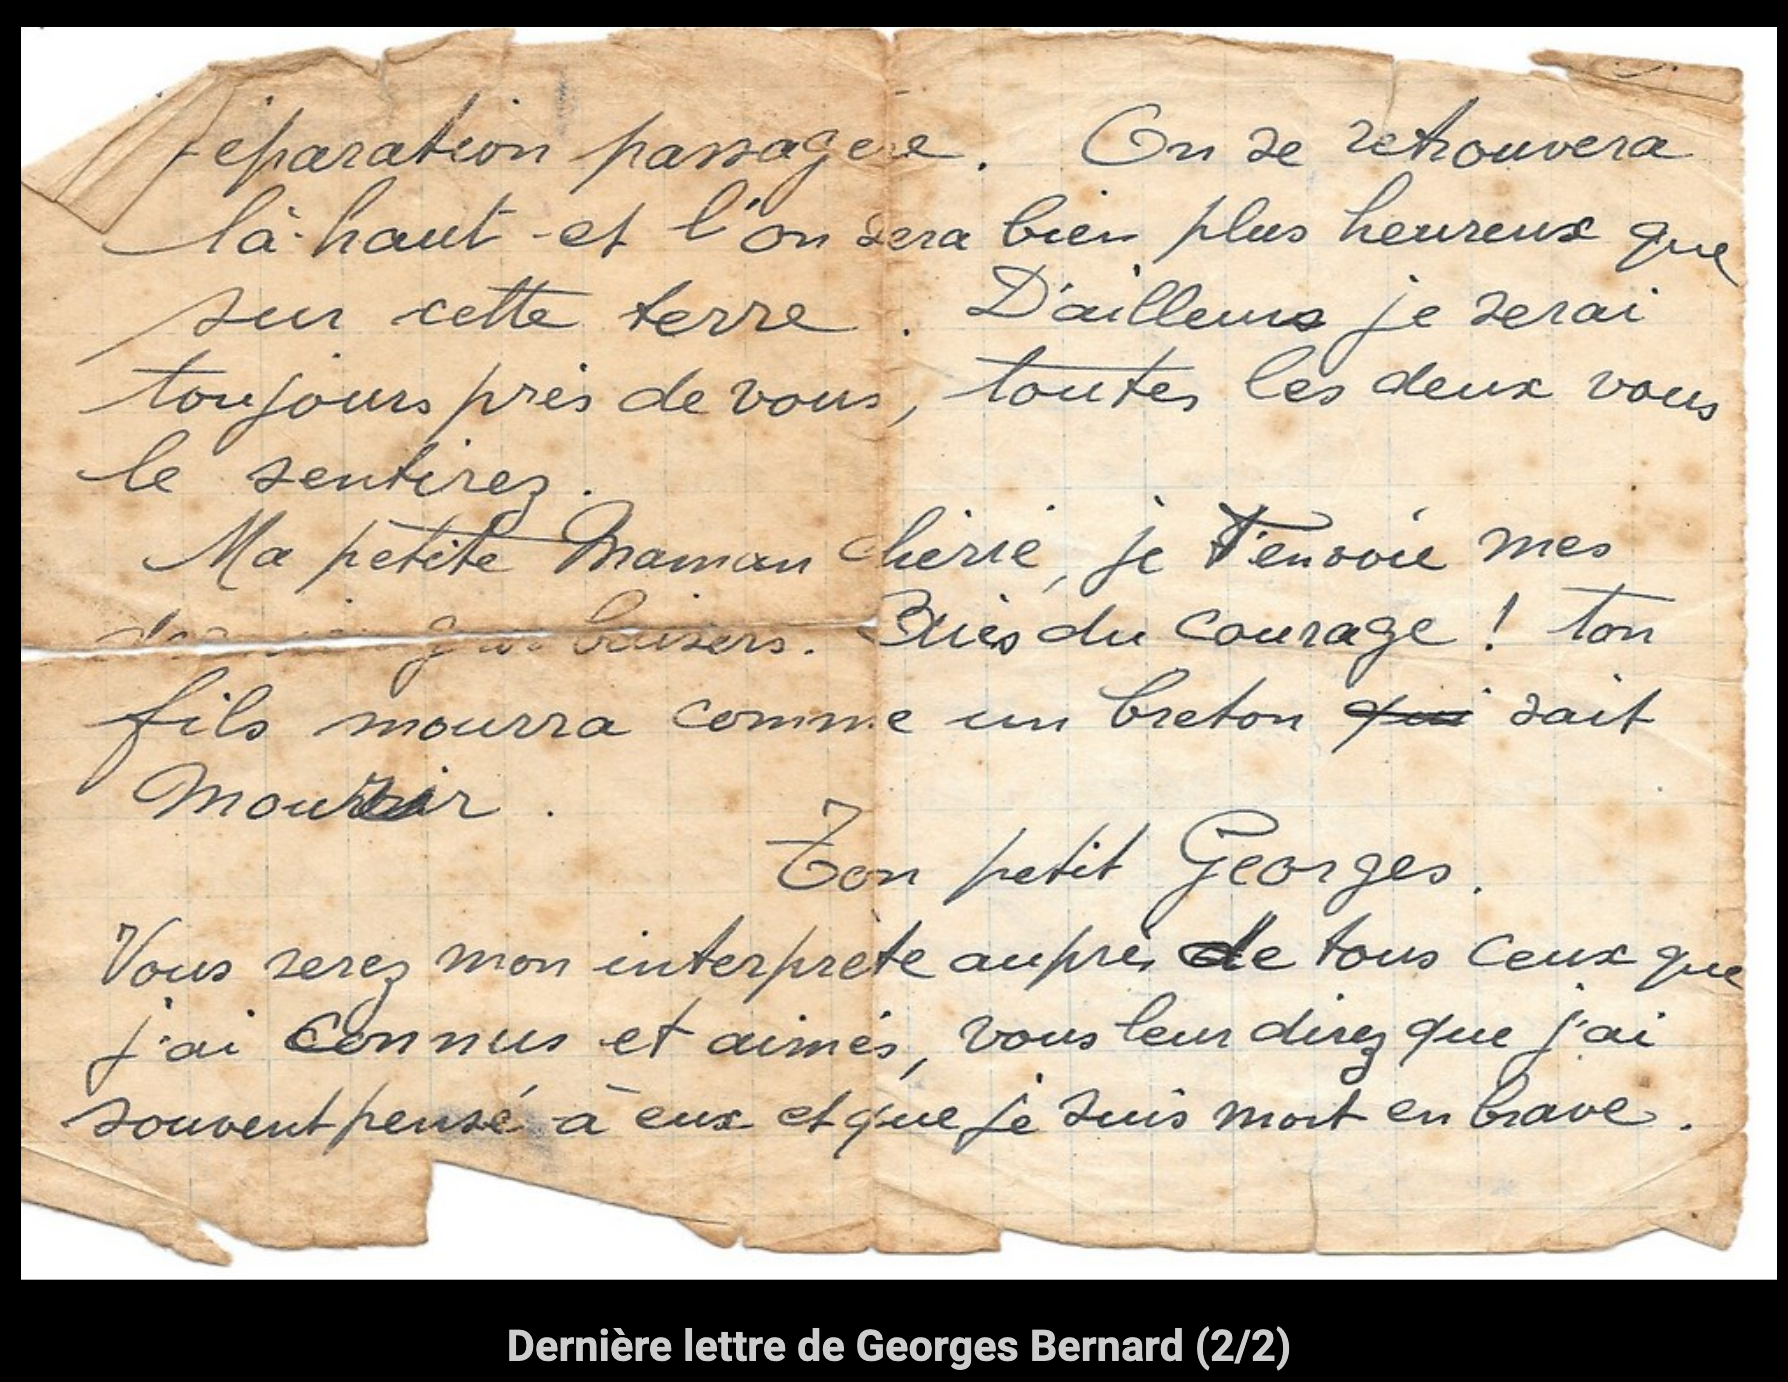 séparation passagère. On se retrouvera
là-haut et l'on sera bien plus heureux que
sur cette terre. D'ailleurs je serai
toujours près de vous, toutes les deux vous
le sentirez.
Ma petite Maman chérie, je t'envoie mes
baisers. du courage ! ton
fils mourra comme un breton qui sait
mourir.
Ton petit Georges.
Vous serez mon interprète auprès de tous ceux que
j'ai connus et aimés, vous leur direz que j'ai
souvent pensé à eux et que je suis mort en brave.
Dernière lettre de Georges Bernard (2/2)